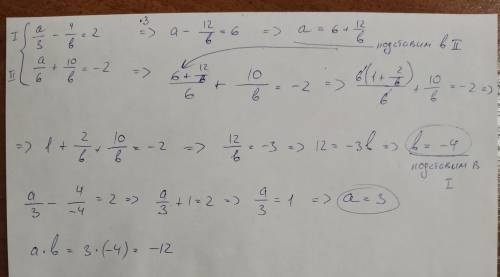 I { a/3 - 4/b = 2 ·3 => a - 12/b = 6 => a = 6 + 12/b
подставим в II
II { a/6 + 10/b = -2 => (6 + 12/b)/6 + 10/b = -2 => 6(1 + 2/b)/6 + 10/b = -2 =>
=> 1 + 2/b + 10/b = -2 => 12/b = -3 => 12 = -3b => b = -4
подставим в I
a/3 - 4/-4 = 2 => a/3 + 1 = 2 => a/3 = 1 => a = 3
a · b = 3 · (-4) = -12